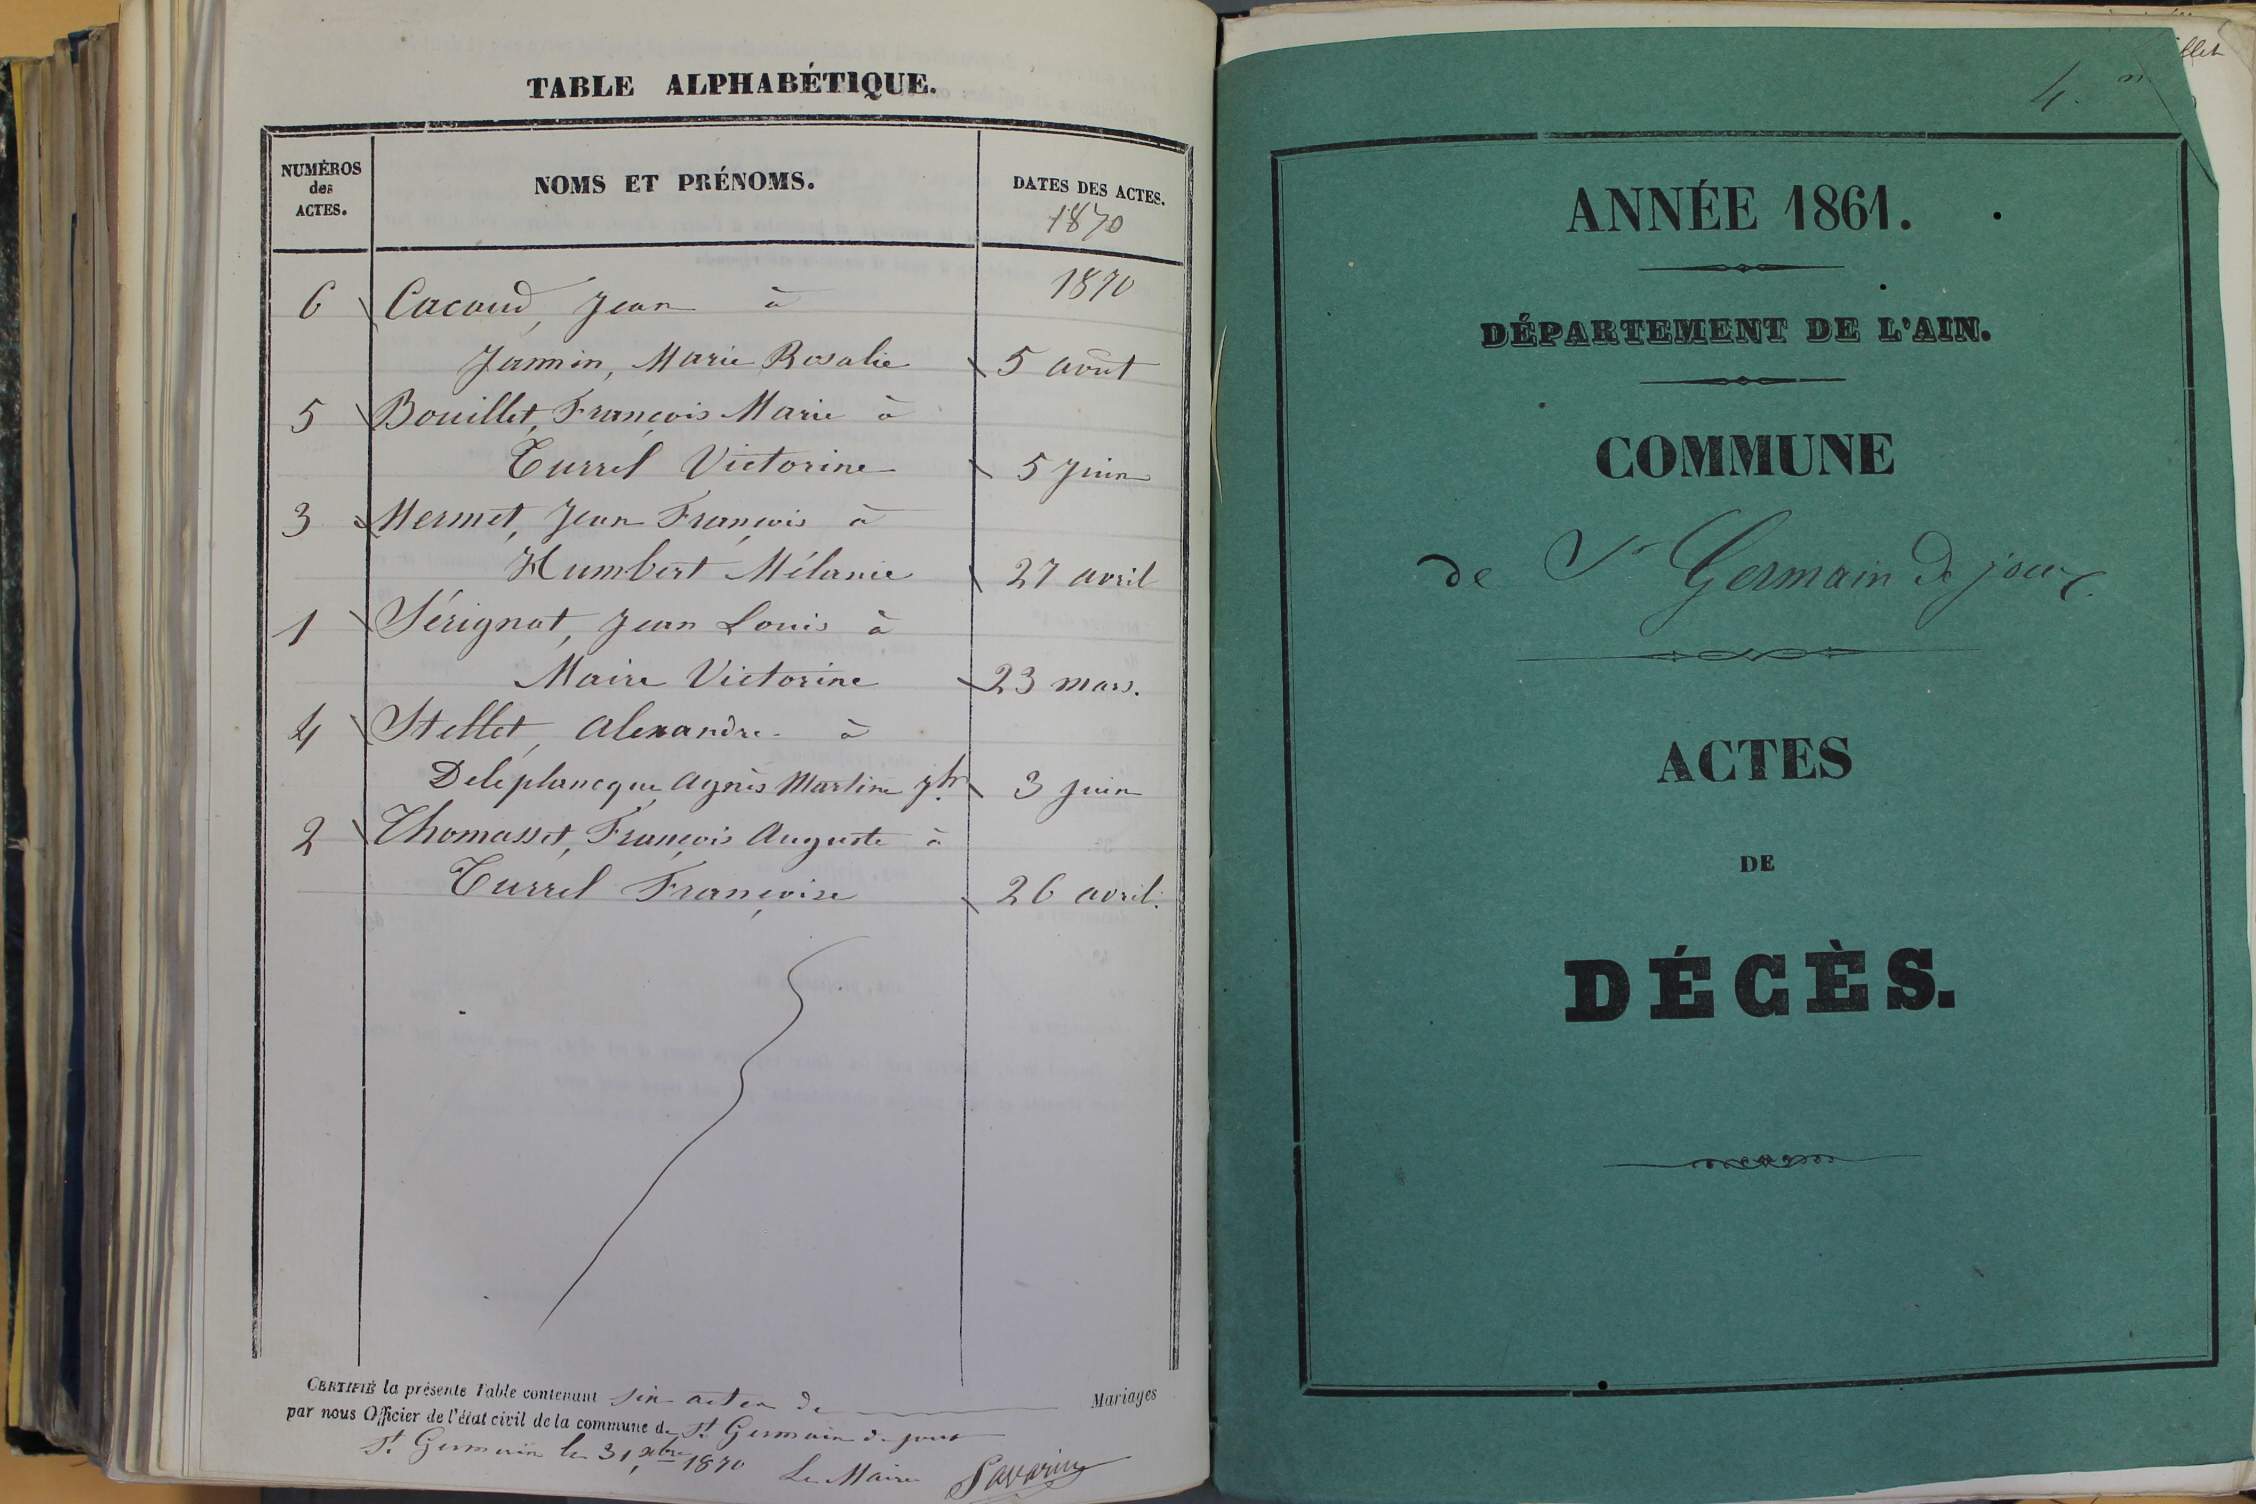 TABLE ALPHABÉTIQUE.
NUMÉROS
des
ACTES.
NOMS ET PRÉNOMS.
DATES DES ACTES.
1870
1870
6 Cacoud, Jean à
Jannin, Marie Rosalie 5 août
5 Bouillet, François Marie à
Turrel Victorine 5 Juin
3 Mermet, Jean François à
Humbert Mélanie 27 avril
1 Sérignat, Jean Louis à
Maire Victorine 23 mars.
4 Stellet, Alexandre à
Deleplancque Agnès Martine Jh. 3 Juin
2 Thomasset, François Auguste à
Turrel Françoise 26 avril.
CERTIFIÉ la présente Table contenant six actes de Mariages
par nous Officier de l'état civil de la commune de St Germain de joux
St Germain le 31 xbre 1870 Le Maire Savarin
4.
illet
ANNÉE 1861.
DÉPARTEMENT DE L'AIN.
COMMUNE
de St Germain de joux.
ACTES
DE
DÉCÈS.